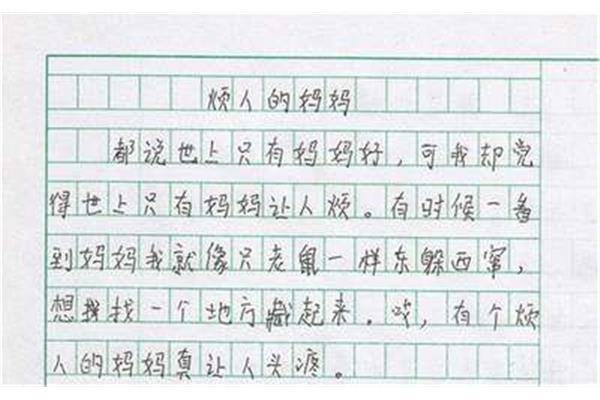 烦人的妈妈
都说世上只有妈妈好，可我却觉
得世上只有妈妈让人烦。有时候一看
到妈妈我就像只老鼠一样东躲西窜，
想找一个地方藏起来。哎，有个烦
人的妈妈真让人头疼。